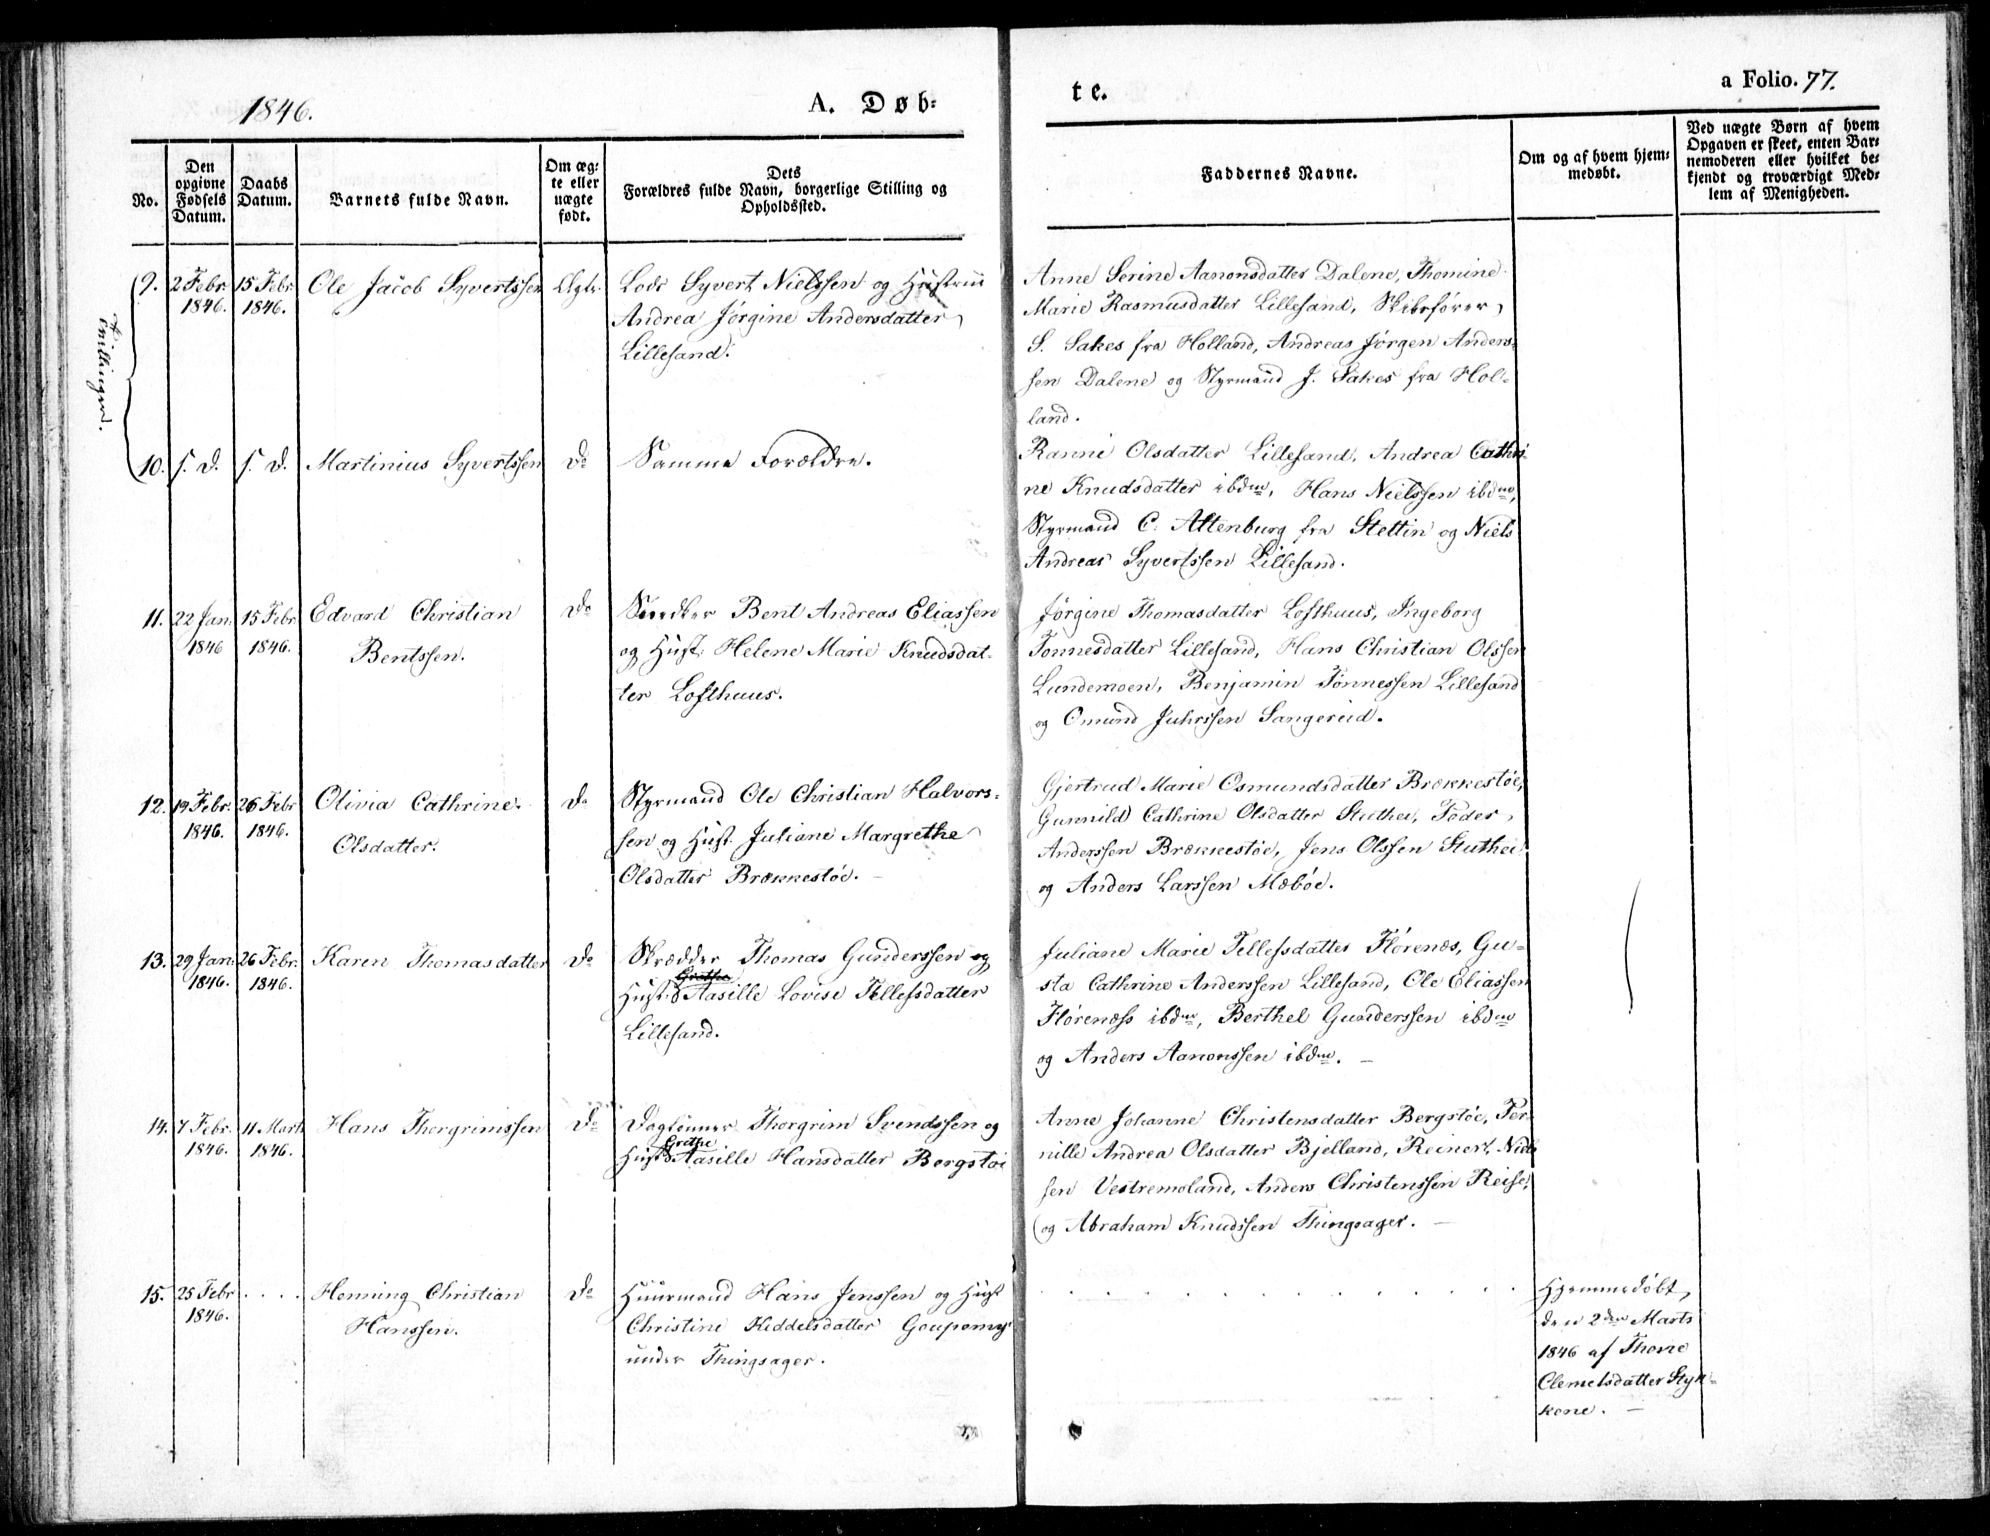 1846.
A. Døb=
te.
a Folio. 77.
No.
Den opgivne Fødsels Datum.
Daabs Datum.
Barnets fulde Navn.
Om æg= te eller uægte født.
Dets Forældres fulde Navn, borgerlige Stilling og Opholdssted.
Faddernes Navne.
Om og af hvem hjem= medøbt.
Ved uægte Børn af hvem Opgaven er skeet, enten Bar= nemoderen eller hvilket be= kjendt og troværdigt Med= lem af Menigheden.
Tvillinger.
9. 2 Febr 1846. 15 Febr 1846. Ole Jacob Syvertssen Ægte
Lods Syvert Nielssen og Hustrue
Andrea Jørgine Andersdatter
Lillesand.
Anne Serine Aanonsdatter Dalene, Thomine
Marie Rasmusdatter Lillesand, Skibsfører
S. Sakes fra Holland, Andreas Jørgen Anders=
sen Dalene og Styrmand J. Sakes fra Hol=
land.
10. s. D. s. D. Martinius Syvertssen Do
Samme Forældre.
Ranni Olsdatter Lillesand, Andrea Cathri=
ne Knudsdatter ibdm, Hans Nielssen ibdm,
Styrmand C. Altenburg fra Stettin og Niels
Andreas Syvertssen Lillesand.
11. 22 Jan. 1846 15 Febr 1846. Edvard Christian
Bentssen. Do
Snedker Bent Andreas Eliassen
og Hust. Helene Marie Knudsdat=
ter Lofthuus.
Jørgine Thomasdatter Lofthuus, Ingeborg
Tønnesdatter Lillesand, Hans Christian Olssen
Lundemoen, Benjamin Tønnessen Lillesand
og Omund Juhrssen Sangereid.
12. 19 Febr. 1846. 26 Febr 1846. Olivia Cathrine
Olsdatter. Do
Styrmand Ole Christian Halvors=
sen og Hust. Juliane Margrethe
Olsdatter Brækkestøe. –
Gjertrud Marie Osmundsdatter Brækkestøe,
Gunnild Cathrine Olsdatter Stuthei, Peder
Anderssen Brækkestøe, Jens Olssen Stuthei
og Anders Larssen Mæbøe.
13. 29 Jan. 1846. 26 Febr. 1846. Karen Thomasdatter Do
Skrædder Thomas Gunderssen og
Grethe
Hust. Aasille Lovise Tellefsdatter
Lillesand.
Juliane Marie Tellefsdatter Flørenæs, Gu=
sta Cathrine Anderssen Lillesand, Ole Eliassen
Flørenæss ibdm, Berthel Gunderssen ibdm
og Anders Aanonssen ibdm. –
14. 7 Febr. 1846. 11 Marts 1846. Hans Thorgrimssen Do
Daglønner Thorgrim Svendssen og
Grethe
Hust. Aasille Hansdatter Bergstøe
Anne Johanne Christensdatter Bergstøe, Per=
nille Andrea Olsdatter Bjelland, Reinert Niels
sen Vestremoland, Anders Christenssen Reise,
og Abraham Knudssen Thingsager. –
15. 25 Febr 1846. . . . . Henning Christian
Hanssen. Do
Huusmand Hans Jenssen og Hust
Christine Keddelsdatter
under Thingsager.
Hjemmedøbt
den 2den Marts
1846 af Thone
Clemetsdatter Styk=
kene. –